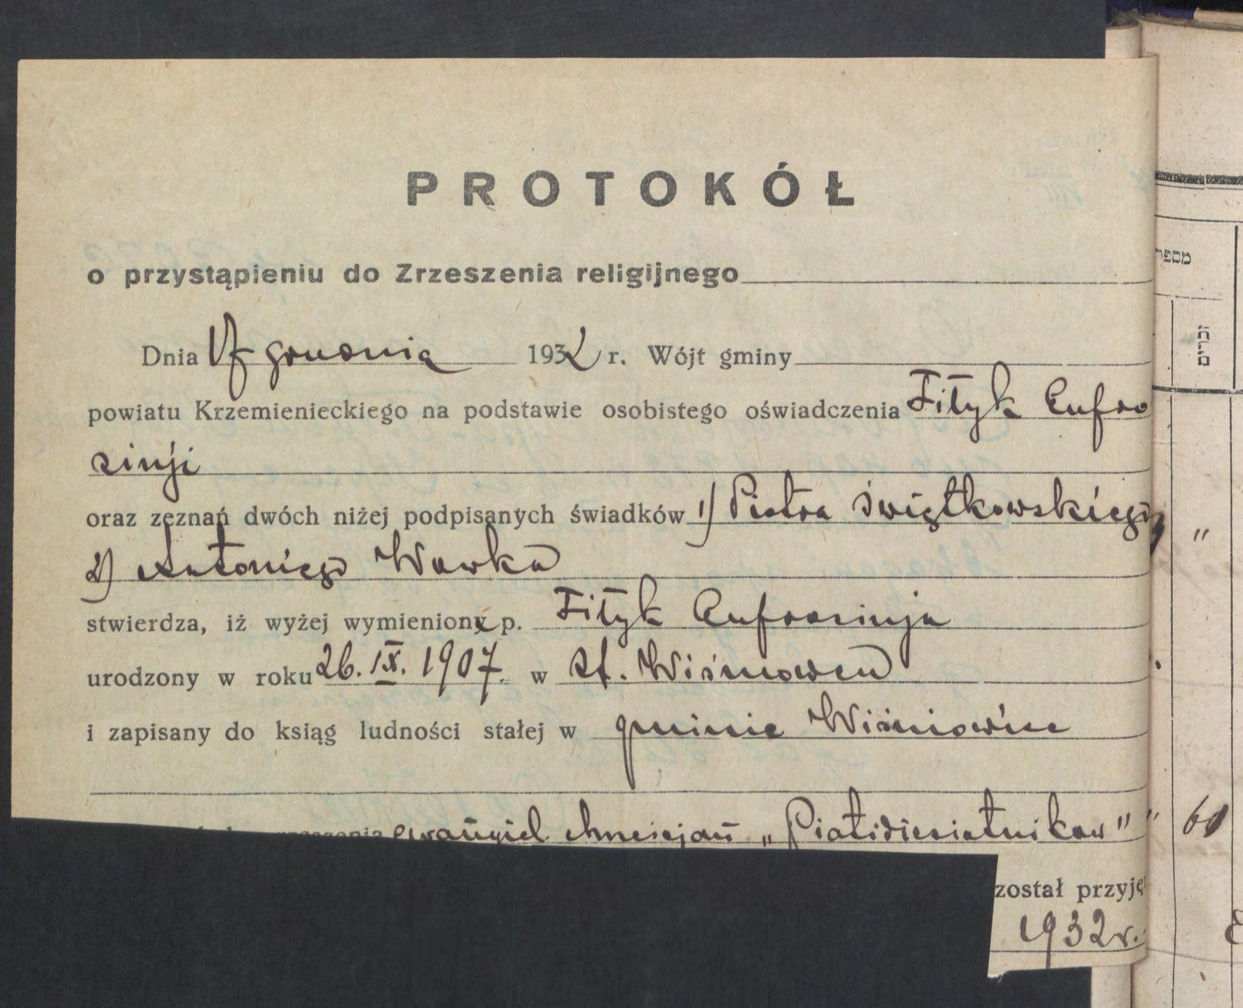 PROTOKÓŁ
o przystąpieniu do Zrzeszenia religijnego
Dnia 17 grudnia 1932 r. Wójt gminy
powiatu Krzemienieckiego na podstawie osobistego oświadczenia Fityk Eufro
sinji
oraz zeznań dwóch niżej podpisanych świadków 1) Piotra Świątkowskiego
2) Antoniego Wawka
stwierdza, iż wyżej wymieniony p. Fityk Eufrosinja
urodzony w roku 26.IX.1907. w st. Wiśniowcu
i zapisany do ksiąg ludności stałej w gminie Wiśniowiec
ewangiel chrześcjan „Piatidiesiatnikow"
został przyję
1932 r.
מספר
"
60